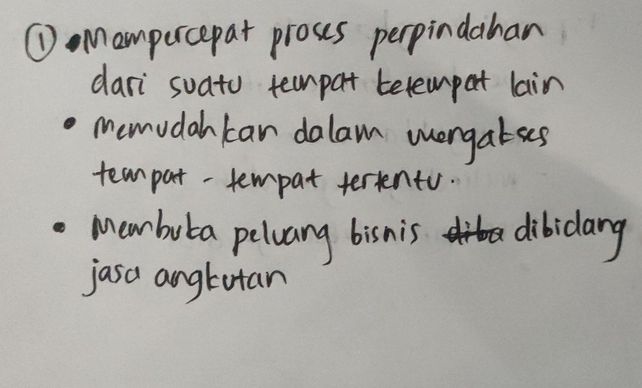 ① • Mempercepat proses perpindahan
dari suatu tempat ketempat lain
• Memudahkan dalam mengakses
tempat - tempat tertentu.
• Membuka peluang bisnis diba dibidang
jasa angkutan